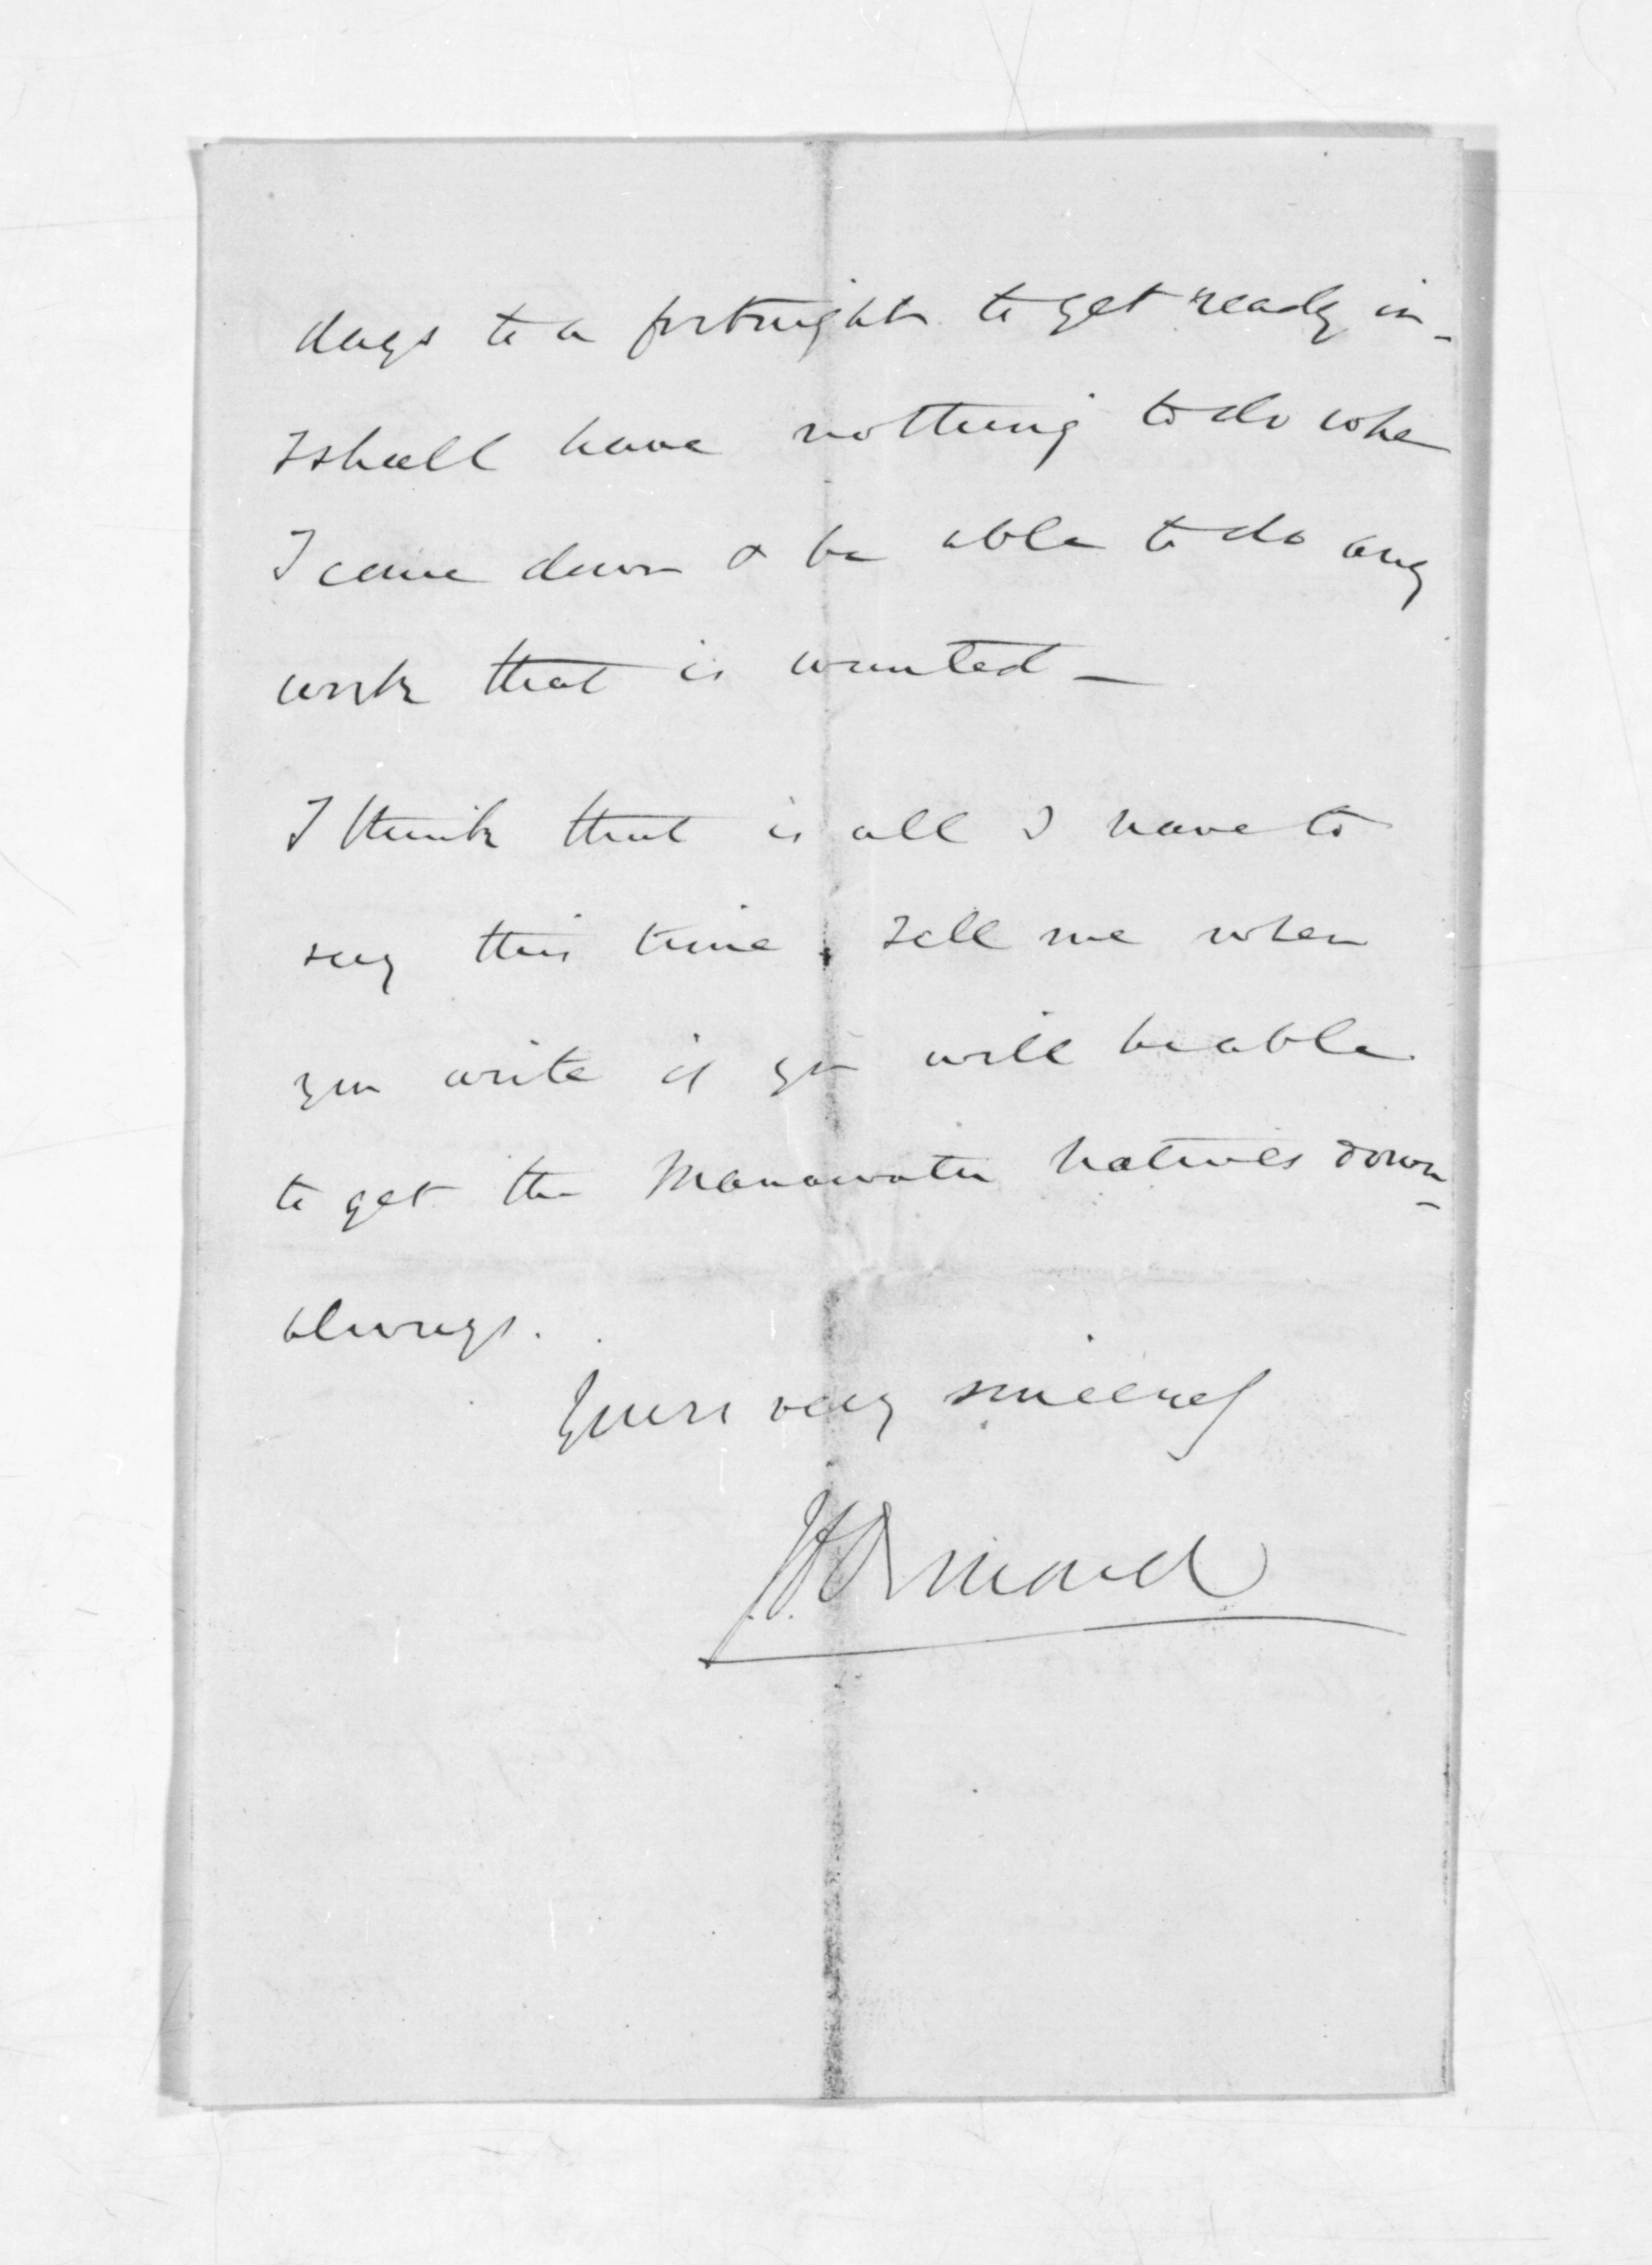 days to a fortnight to get ready in -
I shall have nothing to do when
I come down & be able to do any
work that is wanted -
I think that is all I have to
say this time. Tell me when
you write if you will be able
to get the Manawatu Natives down -
always.
Yours very sincerely
J.D. Ormond